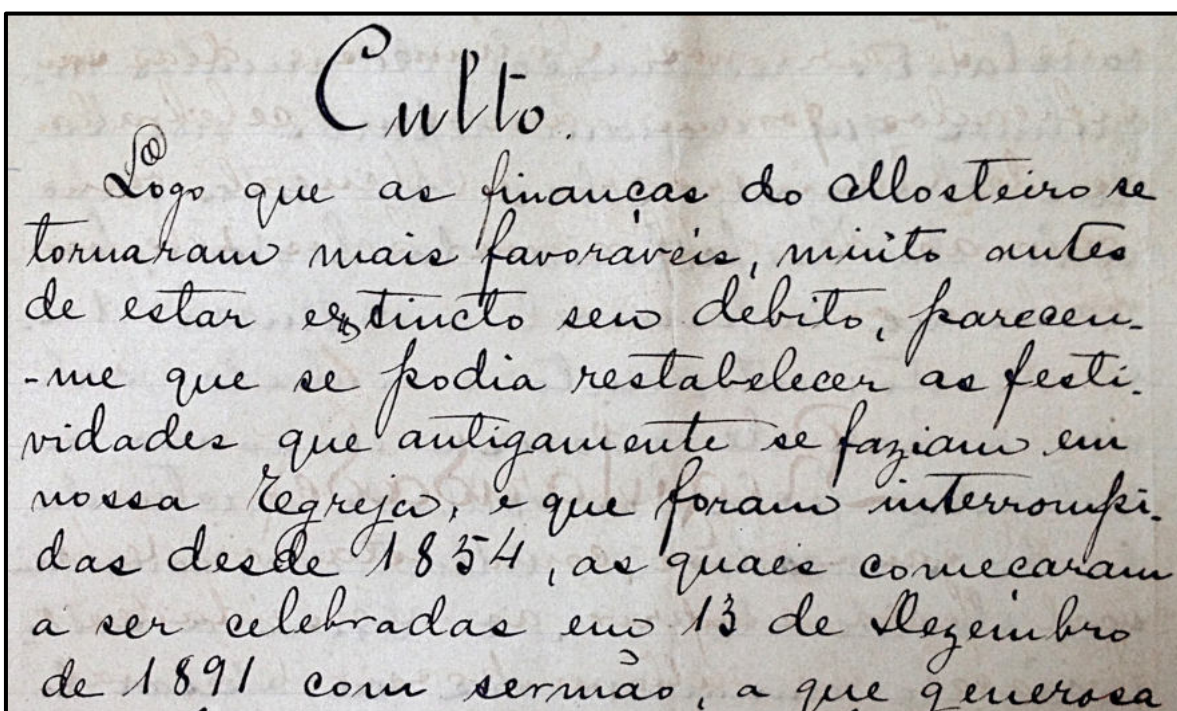 Culto.
Logo que as finanças do Mosteiro se
tornaram mais favoráveis, muito antes
de estar extincto seu debito, pareceu-
-me que se podia restabelecer as festi-
vidades que antigamente se faziam em
nossa Egreja, e que foram interrompi-
das desde 1854, as quaes começaram
a ser celebradas em 13 de Dezembro
de 1891 com sermão, a que generosa